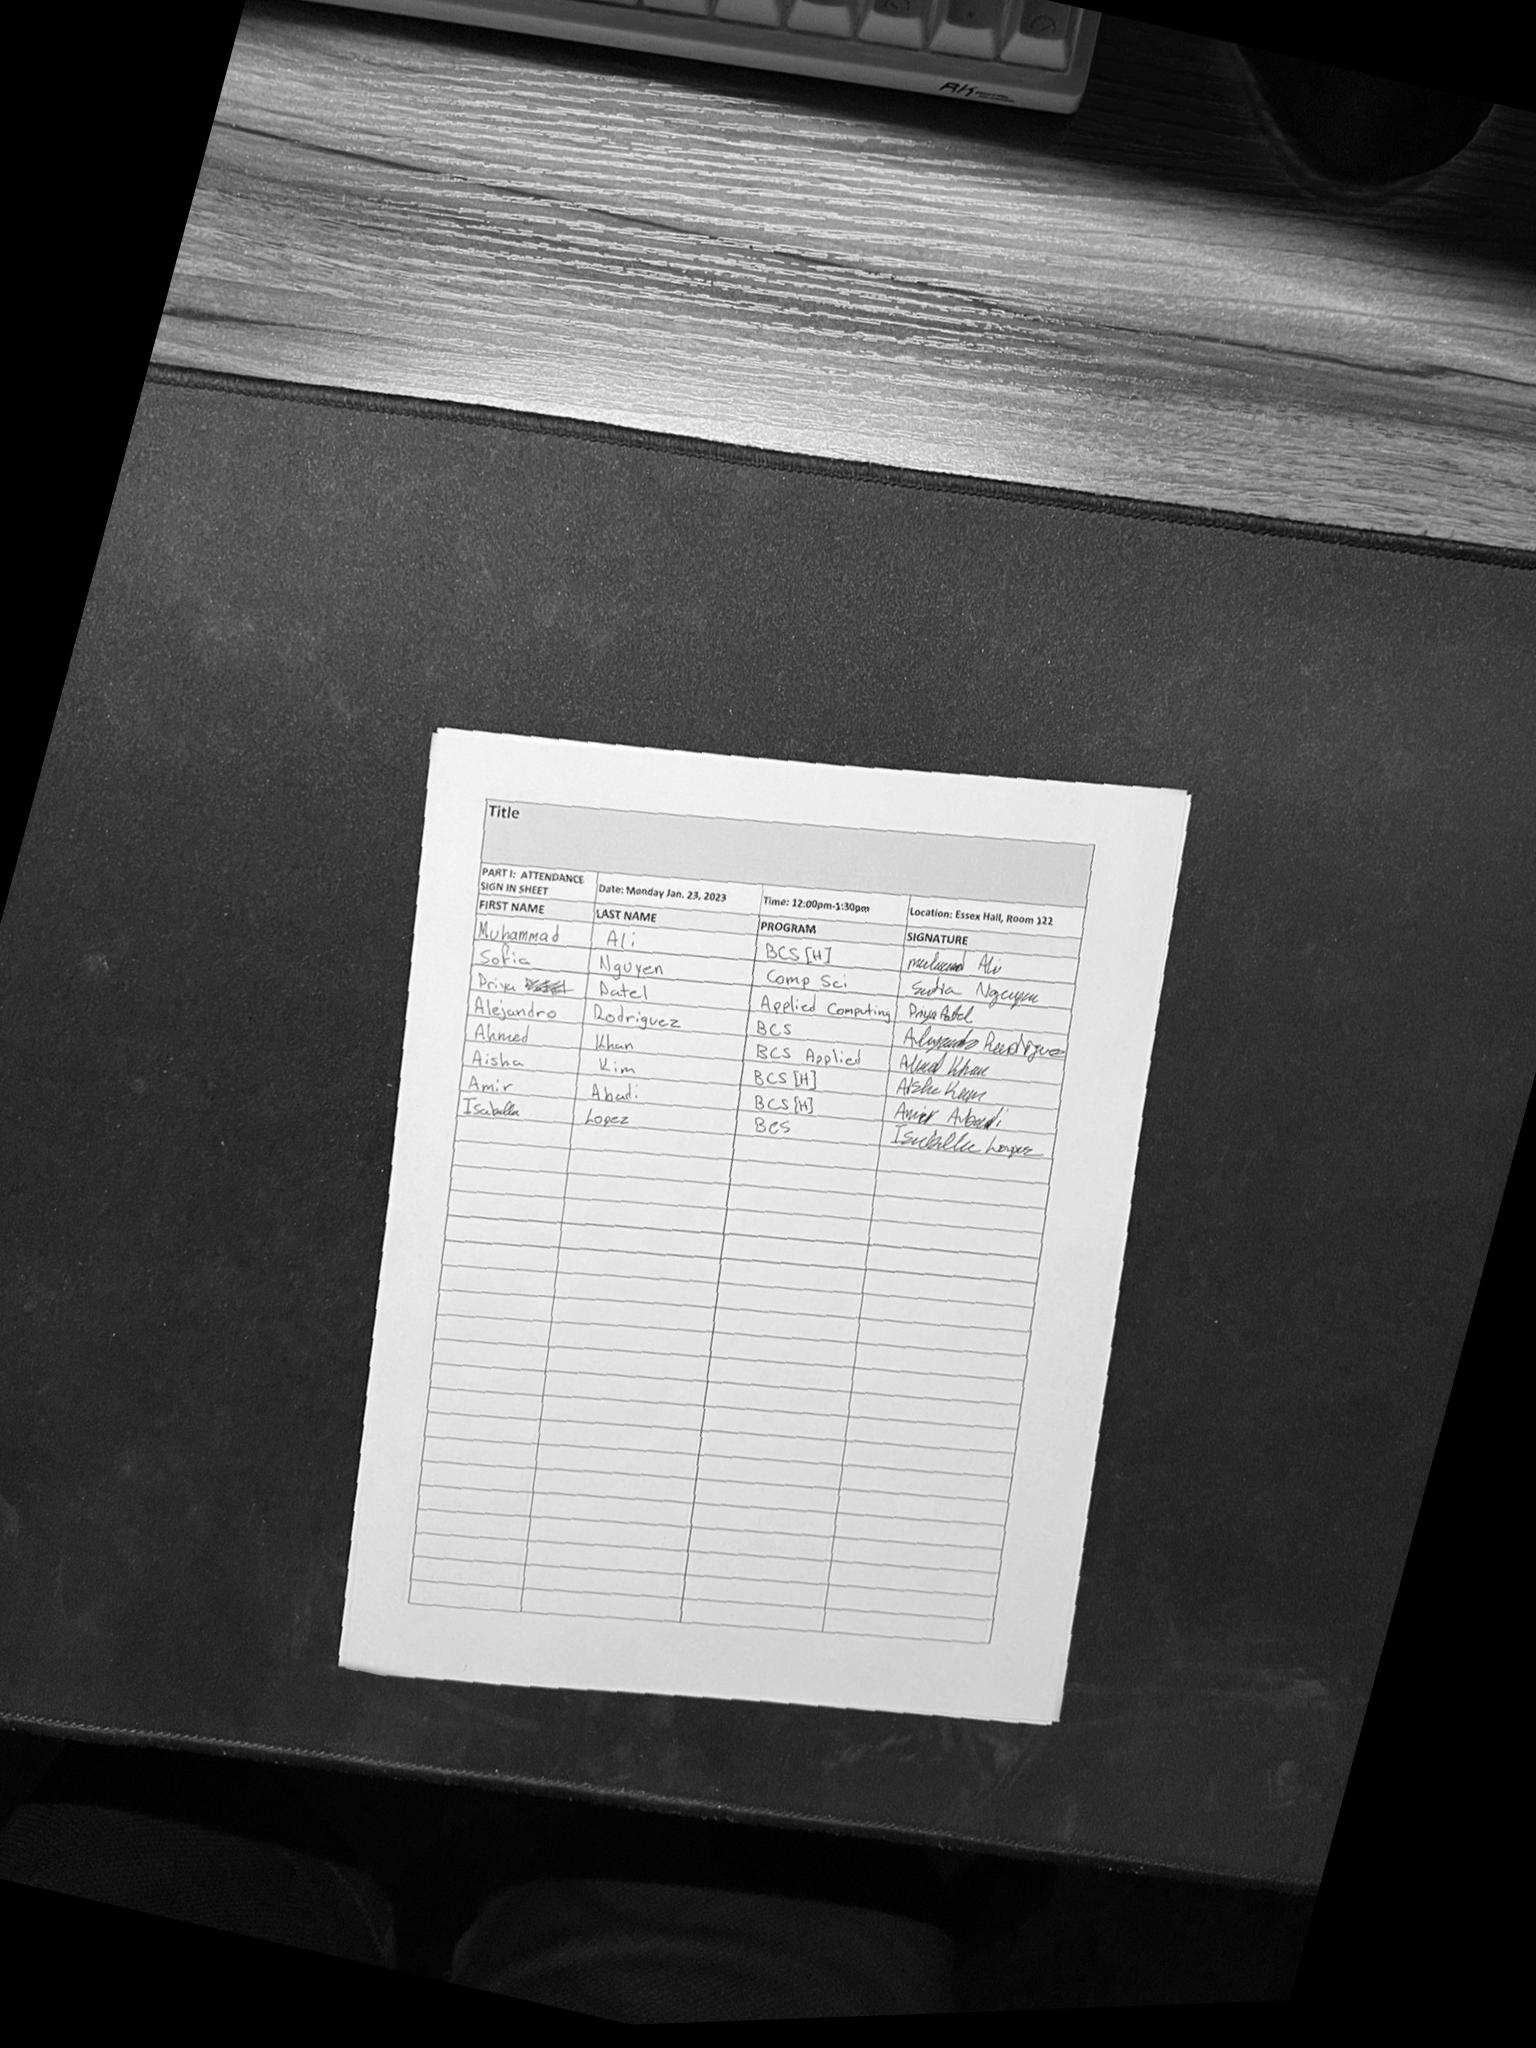 RK
Title
PART I: ATTENDANCE SIGN IN SHEET Date: Monday Jan. 23, 2023 Time: 12:00pm-1:30pm Location: Essex Hall, Room 122
FIRST NAME LAST NAME PROGRAM SIGNATURE
Muhammad Ali BCS [H] Ali
Sofia Nguyen Comp Sci Sofia Nguyen
Priya Patel Applied Computing Priya Patel
Alejandro Rodriguez BCS Alejandro Rodriguez
Ahmed Khan BCS Applied Ahmed Khan
Aisha Kim BCS [H] Aisha Kim
Amir Abadi BCS [H] Amir Abadi
Isabella Lopez BCS Isabella Lopez